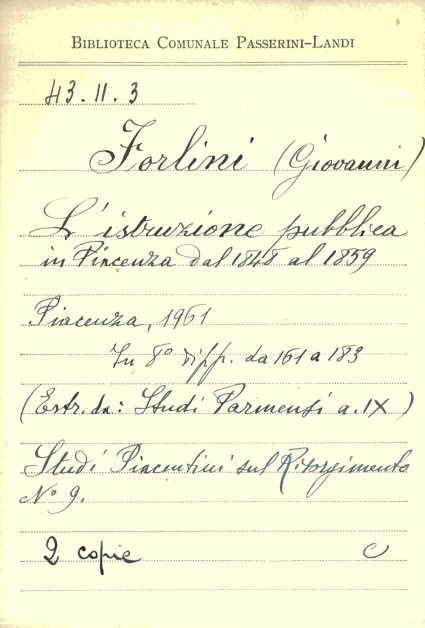 BIBLIOTECA COMUNALE PASSERINI-LANDI
43.II.3
Forlini (Giovanni)
L'istruzione pubblica
in Piacenza dal 1848 al 1859
Piacenza, 1961
In 8° di pp. da 161 a 183
(Estr. da: Studi Parmensi a. IX)
Studi Piacentini sul Risorgimento
N° 9.
2 copie C